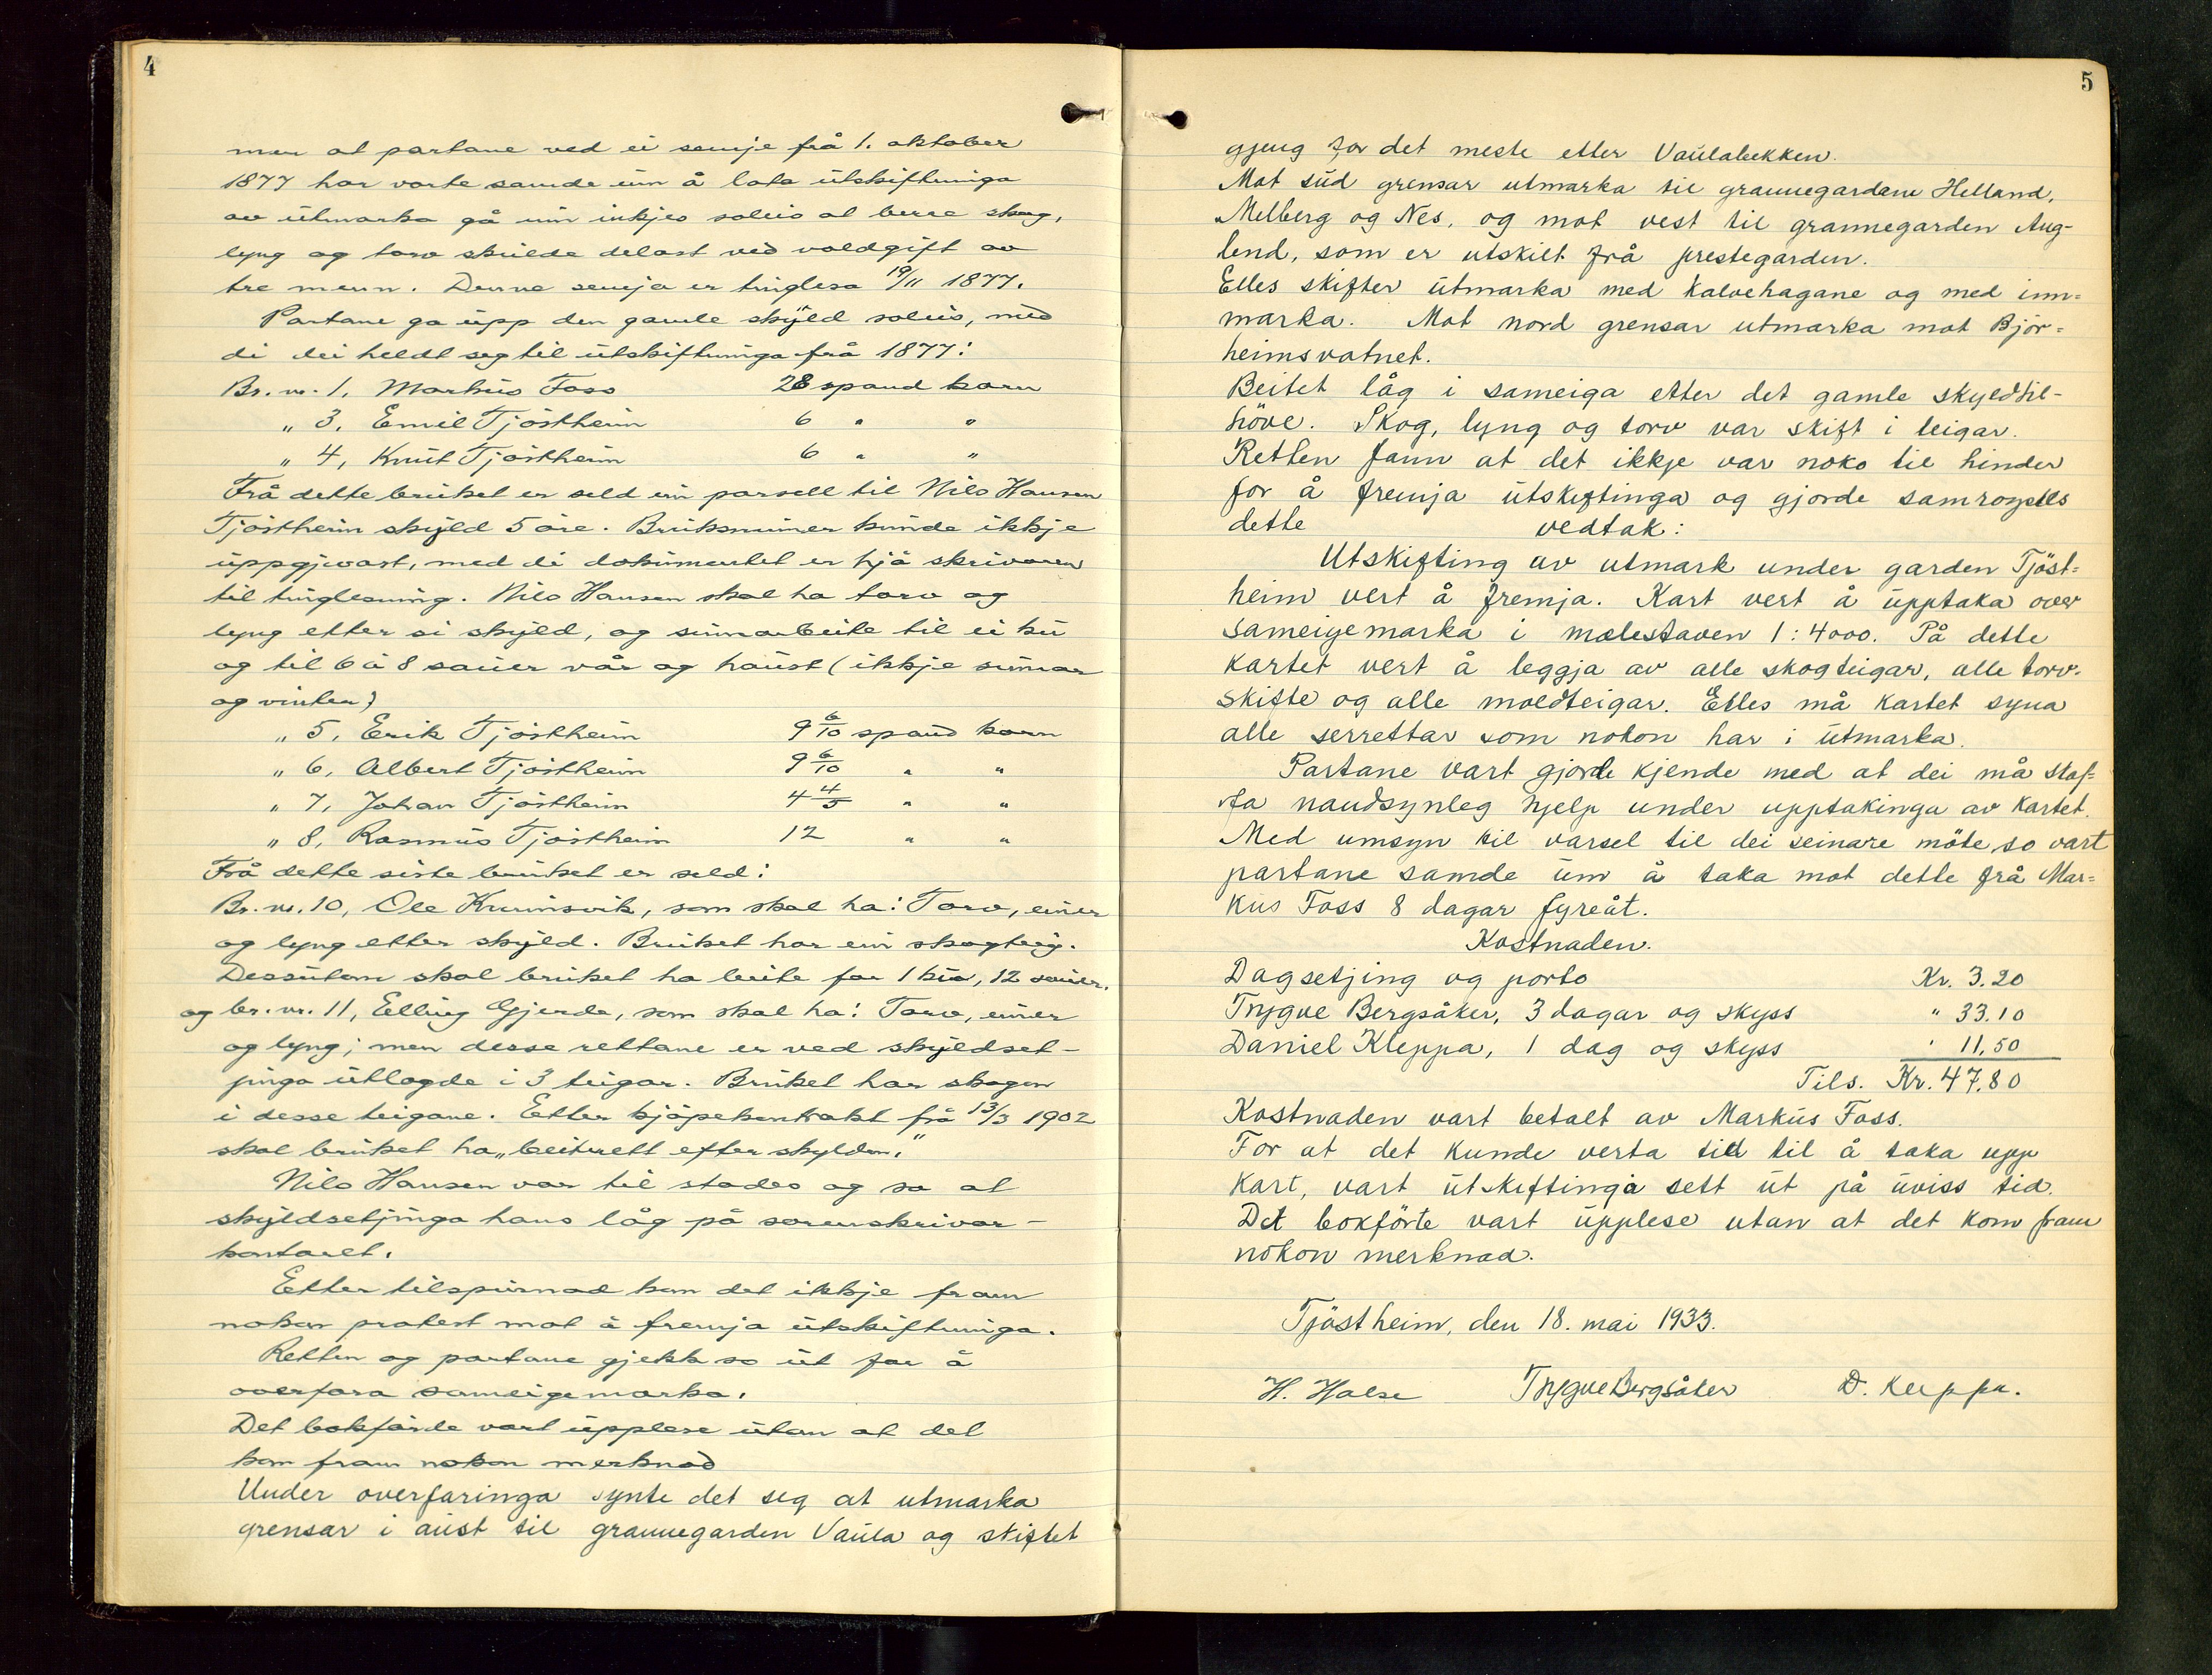 4
men at partane ved ei semje frå 1. oktober
1877 har vorte samde um å lata utskiftninga
av utmarka gå um inkjes soleis at berre skog,
lyng og torv skulde delast ved voldgift av
tre menn. Denne semja er tinglesa 19/11 1877.
Partane ga upp den gamle skyld soleis, med
di dei heldt seg til utskiftninga frå 1877:
Br. nr. 1, Markus Foss 28 spand korn
" 3, Emil Tjöstheim 6 " "
" 4, Knut Tjöstheim 6 " "
Frå dette bruket er seld ein parsell til Nils Hansen
Tjöstheim skyld 5 öre. Bruksnumer kunde ikkje
uppgjevast, med di dokumentet er hjå skrivaren
til tinglesning. Nils Hansen skal ha torv og
lyng etter si skyld, og sumarbeite til ei ku
og til 6 à 8 sauer vår og haust (ikkje sumar
og vinter)
" 5, Erik Tjöstheim 9 6/10 spand korn
" 6, Albert Tjöstheim 9 6/10 " "
" 7, Johan Tjöstheim 4 4/5 " "
" 8, Rasmus Tjöstheim 12 " "
Frå dette siste bruket er seld:
Br. nr. 10, Ole Kvrinsvik, som skal ha: Torv, einer
og lyng etter skyld. Bruket har ein skogteig.
Dessutom skal bruket ha beite for 1 ku, 12 sauer.
og br. nr. 11, Elling Gjerde, som skal ha: Torv, einer
og lyng; men desse rettane er ved skyldset-
jinga utlagde i 3 teigar. Bruket har skogen
i desse teigane. Etter kjöpekontrakt frå 13/3 1902
skal bruket ha „beiterett efter skylden."
Nils Hansen var til stades og sa at
skyldsetjinga hans låg på sorenskrivar-
kontoret.
Etter tilspurnad kom det ikkje fram
nokon protest mot å fremja utskiftninga.
Retten og partane gjekk so ut for å
overfara sameigemarka.
Det bokförde vart upplese utan at det
kom fram nokon merknad
Under overfaringa synte det seg at utmarka
grensar i aust til grannegarden Vaula og skiftet
5
gjeng for det meste etter Vaulabekken.
Mot sud grensar utmarka til grannegardane Helland,
Melberg og Nes, og mot vest til grannegarden Aug-
lend, som er utskilt frå prestegarden.
Elles skifter utmarka med kalvehagane og med inn=
marka. Mot nord grensar utmarka mot Björ=
heimsvatnet.
Beitet låg i sameiga etter det gamle skyldtil-
höve. Skog, lyng og torv var skift i teigar.
Retten fann at det ikkje var noko til hinder
for å fremja utskiftinga og gjorde samröystes
dette vedtak:
Utskifting av utmark under garden Tjöst=
heim vert å fremja. Kart vert å upptaka over
sameigemarka i mælestaven 1:4000. På dette
kartet vert å leggja av alle skogteigar, alle torv-
skifte og alle moldteigar. Elles må kartet syna
alle serrettar som nokon har i utmarka.
Partane vart gjorde kjende med at dei må skaf=
fa naudsynleg hjelp under upptakinga av kartet.
Med umsyn til varsel til dei seinare möte, so vart
partane samde um å taka mot dette frå Mar=
kus Foss 8 dagar fyreåt.
Kostnaden.
Dagsetjing og porto Kr. 3.20
Trygve Bergsåker, 3 dagar og skyss " 33.10
Daniel Kleppa, 1 dag og skyss " 11,50
Tils. Kr. 47,80
Kostnaden vart betalt av Markus Foss.
For at det kunde verta tid til å taka upp
kart, vart utskiftinga sett ut på uviss tid.
Det bokförte vart upplese utan at det kom fram
nokon merknad.
Tjöstheim, den 18. mai 1933.
H. Halse Trygve Bergsåker D. Kleppa.